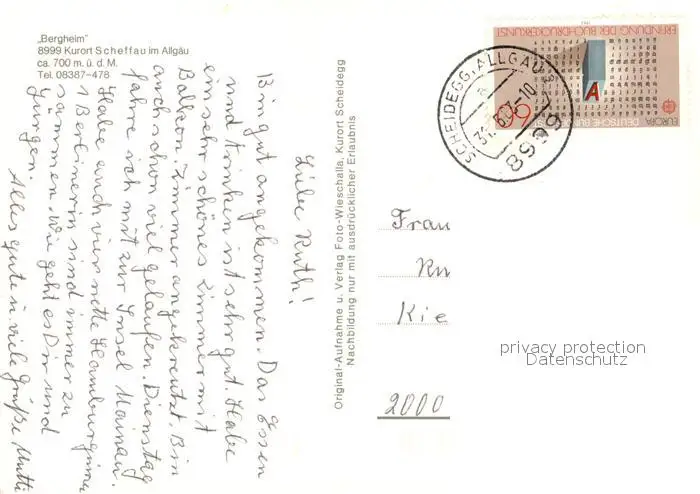 „Bergheim"
8999 Kurort Scheffau im Allgäu
ca. 700 m. ü. d. M.
Tel. 08387–478
Liebe Ruth!
Bin gut angekommen. Das Essen
und trinken ist sehr gut. Habe
ein sehr schönes Zimmer mit
Balkon. Zimmer angekreutzt. Bin
auch schon viel gelaufen. Dienstag
fahre ich mit zur Insel Mainau.
Habe auch vier nette Hamburginnen
1 Berlinerin sind immer zu
sammen. Wie geht es Dir und
Jürgen.
Alles gute u. viele Grüße Mutti
Original-Aufnahme u. Verlag Foto-Wieschalla, Kurort Scheidegg
Nachbildung nur mit ausdrücklicher Erlaubnis
ERFINDUNG DER BUCHDRUCKERKUNST
A
60
EUROPA DEUTSCHE BUNDES
SCHEIDEGG, ALLGÄU
8999
Frau
Ru
Kie
2000
privacy protection
Datenschutz